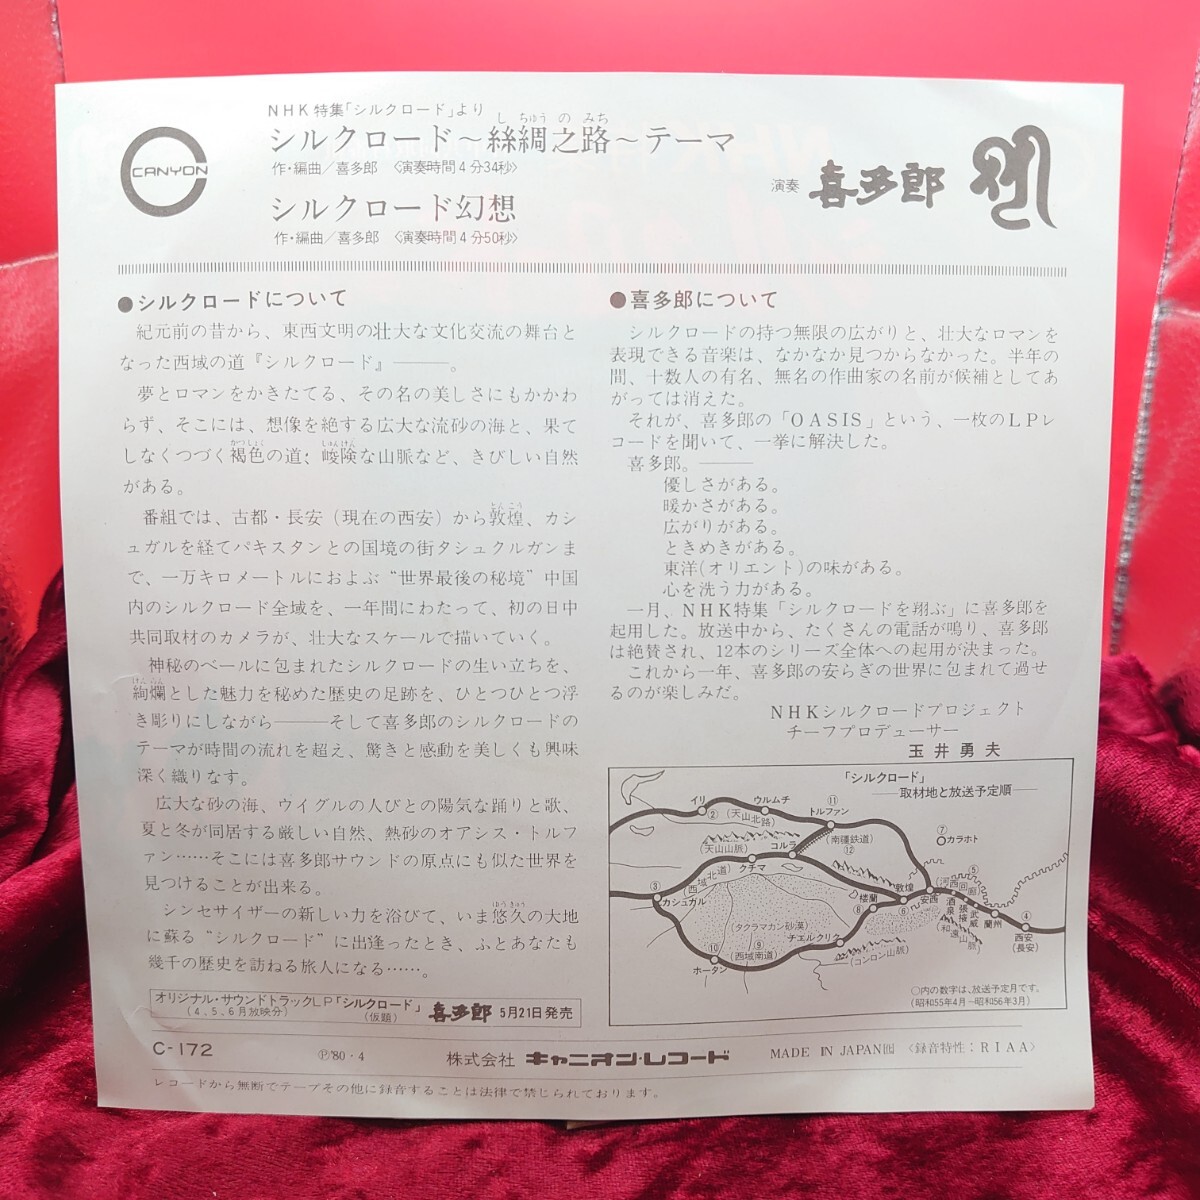 CANYON
NHK特集「シルクロード」より
し ちゅう の みち
シルクロード〜絲綢之路〜テーマ
作・編曲／喜多郎 〈演奏時間4分34秒〉
シルクロード幻想
作・編曲／喜多郎 〈演奏時間4分50秒〉
演奏 喜多郎
●シルクロードについて
紀元前の昔から、東西文明の壮大な文化交流の舞台と
なった西域の道『シルクロード』――。
夢とロマンをかきたてる、その名の美しさにもかかわ
らず、そこには、想像を絶する広大な流砂の海と、果て
かっしょく しゅんけん
しなくつづく褐色の道；峻険な山脈など、きびしい自然
がある。
とんこう
番組では、古都・長安（現在の西安）から敦煌、カシ
ュガルを経てパキスタンとの国境の街タシュクルガンま
で、一万キロメートルにおよぶ“世界最後の秘境”中国
内のシルクロード全域を、一年間にわたって、初の日中
共同取材のカメラが、壮大なスケールで描いていく。
神秘のベールに包まれたシルクロードの生い立ちを、
けんらん
絢爛とした魅力を秘めた歴史の足跡を、ひとつひとつ浮
き彫りにしながら――そして喜多郎のシルクロードの
テーマが時間の流れを超え、驚きと感動を美しくも興味
深く織りなす。
広大な砂の海、ウイグルの人びとの陽気な踊りと歌、
夏と冬が同居する厳しい自然、熱砂のオアシス・トルフ
ァン……そこには喜多郎サウンドの原点にも似た世界を
見つけることが出来る。
ゆうきゅう
シンセサイザーの新しい力を浴びて、いま悠久の大地
に蘇る“シルクロード”に出逢ったとき、ふとあなたも
幾千の歴史を訪ねる旅人になる……。
オリジナル・サウンドトラックLP「シルクロード」 喜多郎 5月21日発売
（4、5、6月放映分） （仮題）
●喜多郎について
シルクロードの持つ無限の広がりと、壮大なロマンを
表現できる音楽は、なかなか見つからなかった。半年の
間、十数人の有名、無名の作曲家の名前が候補としてあ
がっては消えた。
それが、喜多郎の「OASIS」という、一枚のLPレ
コードを聞いて、一挙に解決した。
喜多郎。――
優しさがある。
暖かさがある。
広がりがある。
ときめきがある。
東洋(オリエント)の味がある。
心を洗う力がある。
一月、NHK特集「シルクロードを翔ぶ」に喜多郎を
起用した。放送中から、たくさんの電話が鳴り、喜多郎
は絶賛され、12本のシリーズ全体への起用が決まった。
これから一年、喜多郎の安らぎの世界に包まれて過せ
るのが楽しみだ。
NHKシルクロードプロジェクト
チーフプロデューサー
玉井勇夫
「シルクロード」
――取材地と放送予定順――
イリ
②
ウルムチ
（天山北路）
⑪
トルファン
（南疆鉄道）
⑫
⑦
カラホト
（天山山脈）
コルラ
クチャ
（西域北道）
③
カシュガル
（タクラマカン砂漠）
楼蘭
⑧
敦煌
⑥
安西
（河西回廊）
⑤
酒泉
張掖
武威
蘭州
④
西安
（長安）
⑩
ホータン
⑨
（西域南道）
チエルクリク
（コンロン山脈）
○内の数字は、放送予定月です。
（昭和55年4月〜昭和56年3月）
C-172 Ⓟ'80・4 株式会社 キャニオン・レコード MADE IN JAPAN 〈録音特性；RIAA〉
レコードから無断でテープその他に録音することは法律で禁じられております。